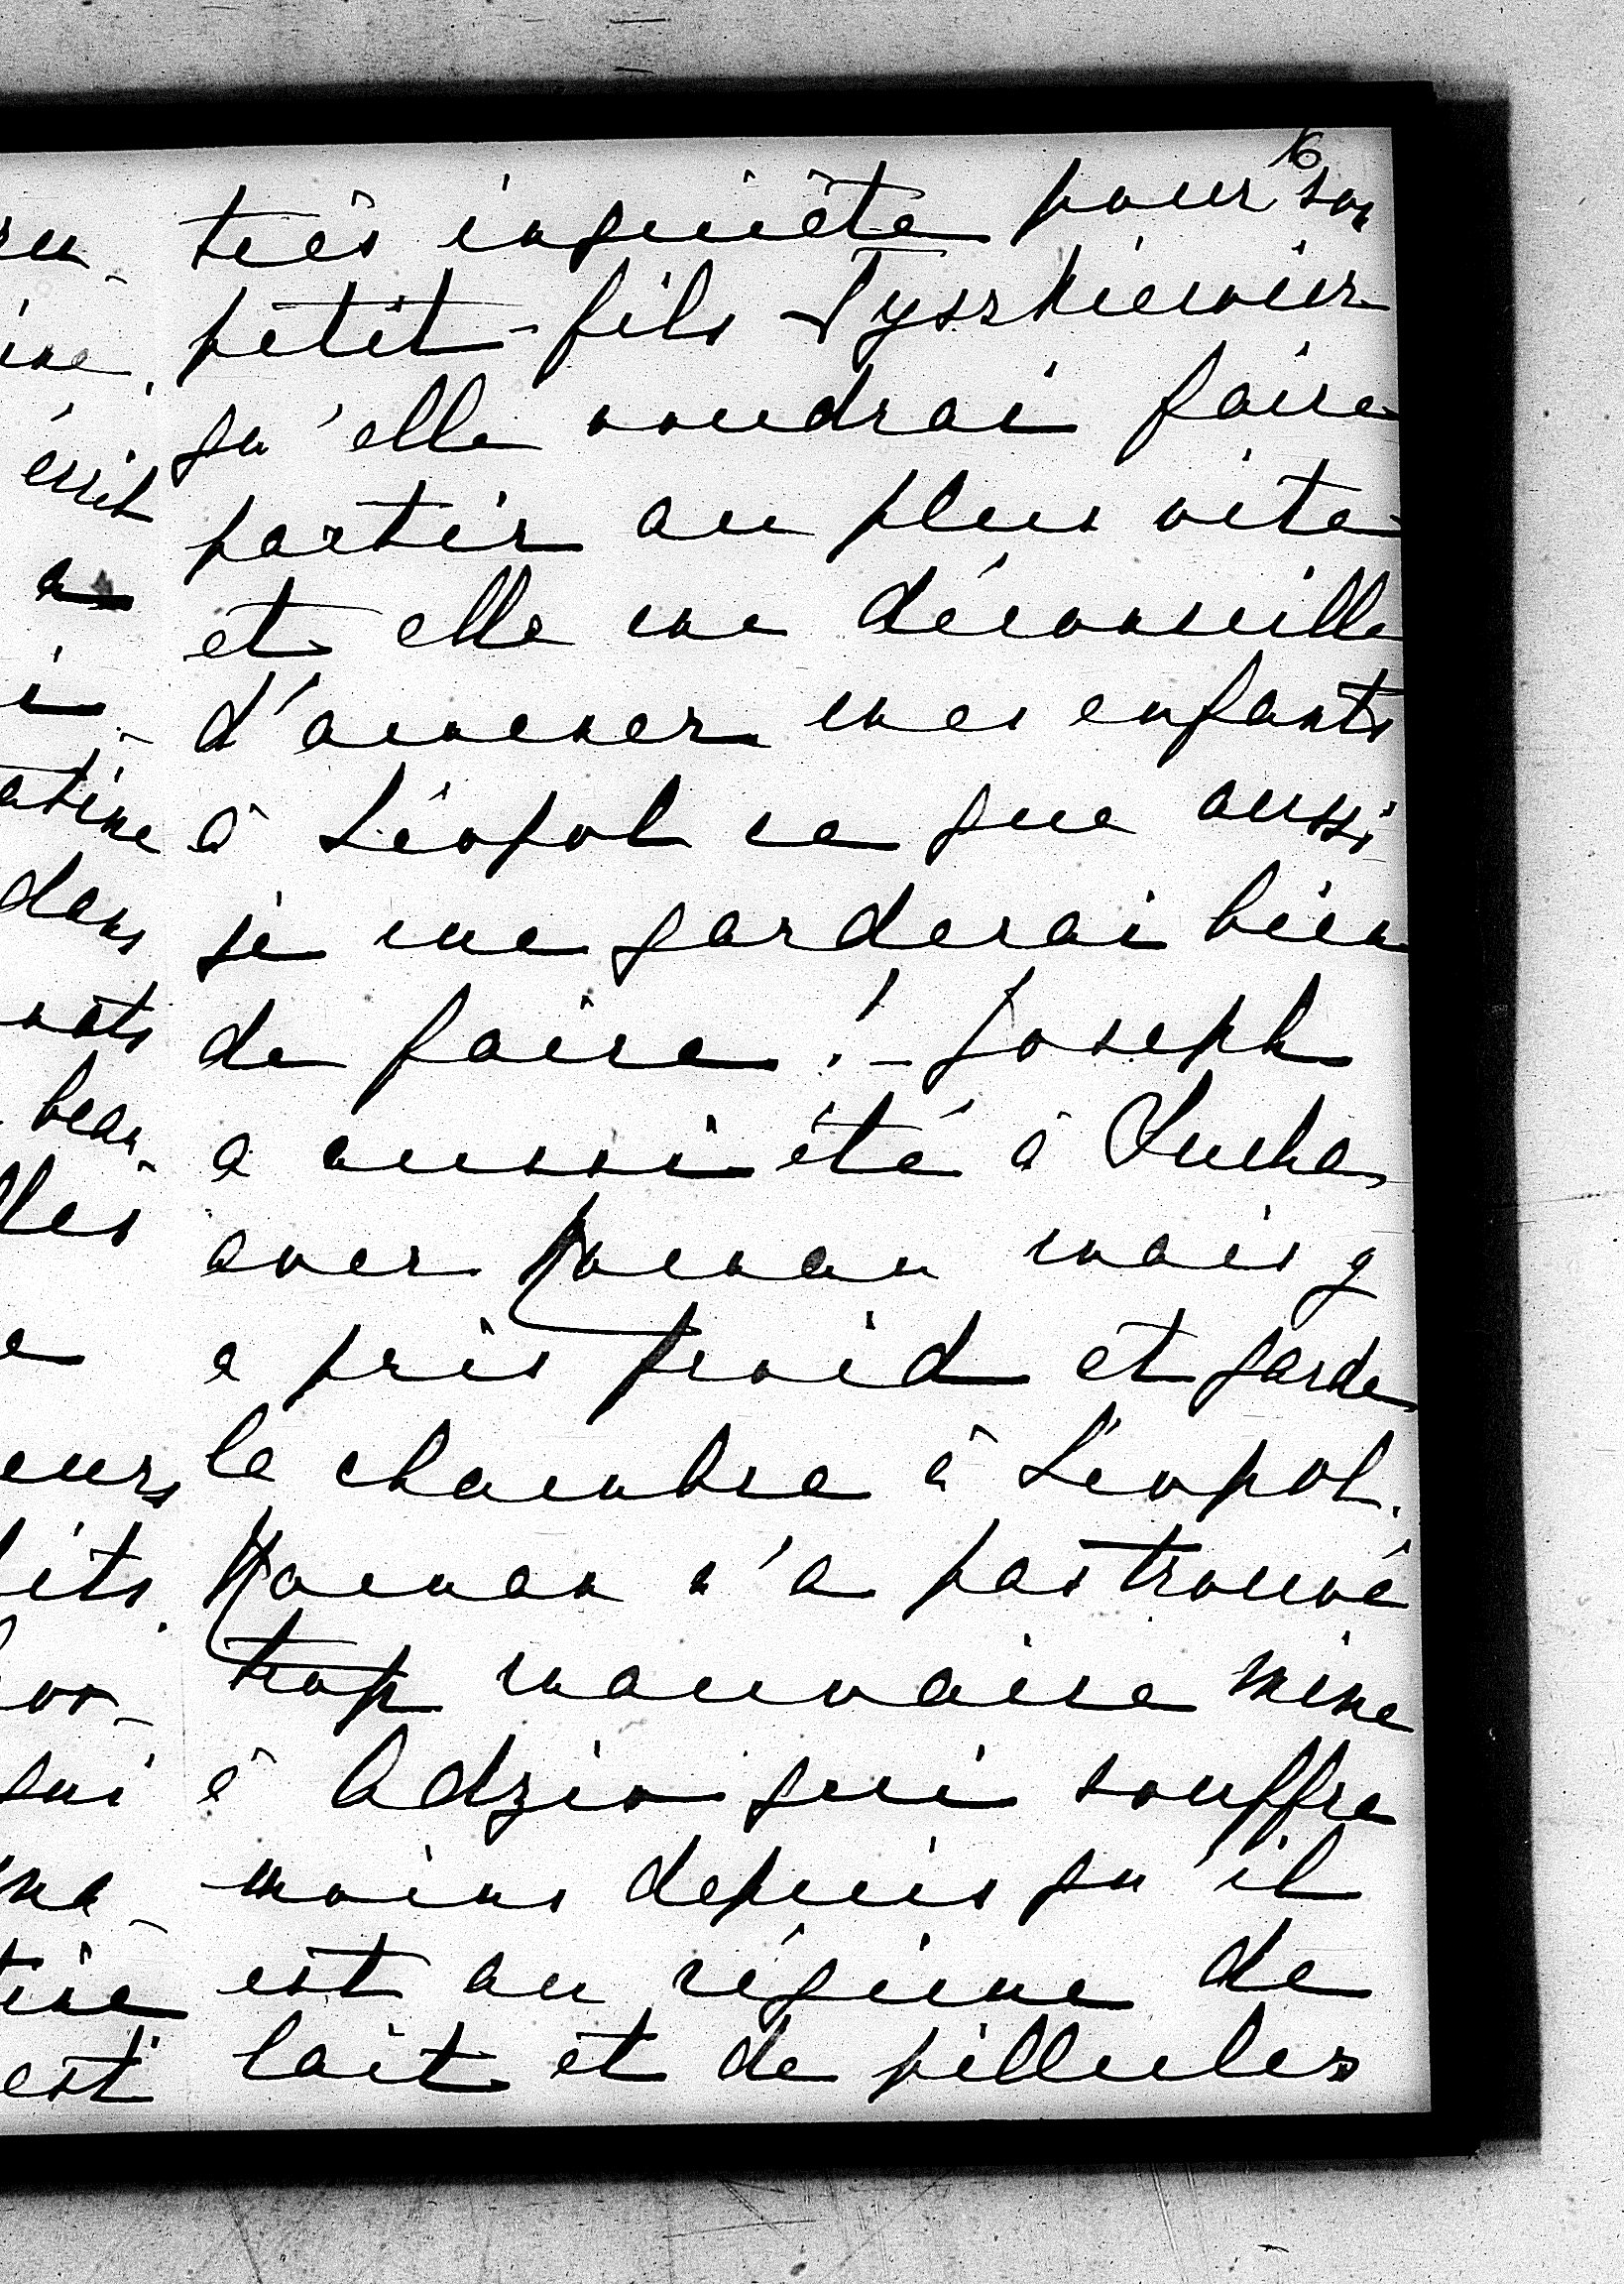 16
très inquiète pour son
petit-fils Tyszkiewicz
qu'elle voudrai faire
partir au plus vite
et elle me déconseille
d'amener mes enfants
à Léopol ce que aussi
je me garderai bien
de faire! - Joseph
a aussi été à Sucha
avec Maman mais y
a pris froid et garde
la chambre à Léopol.
Maman n'a pas trouvé
trop mauvaise mine
à Adzio qui souffre
moins depuis qu'il
est au régime de
lait et de pillules